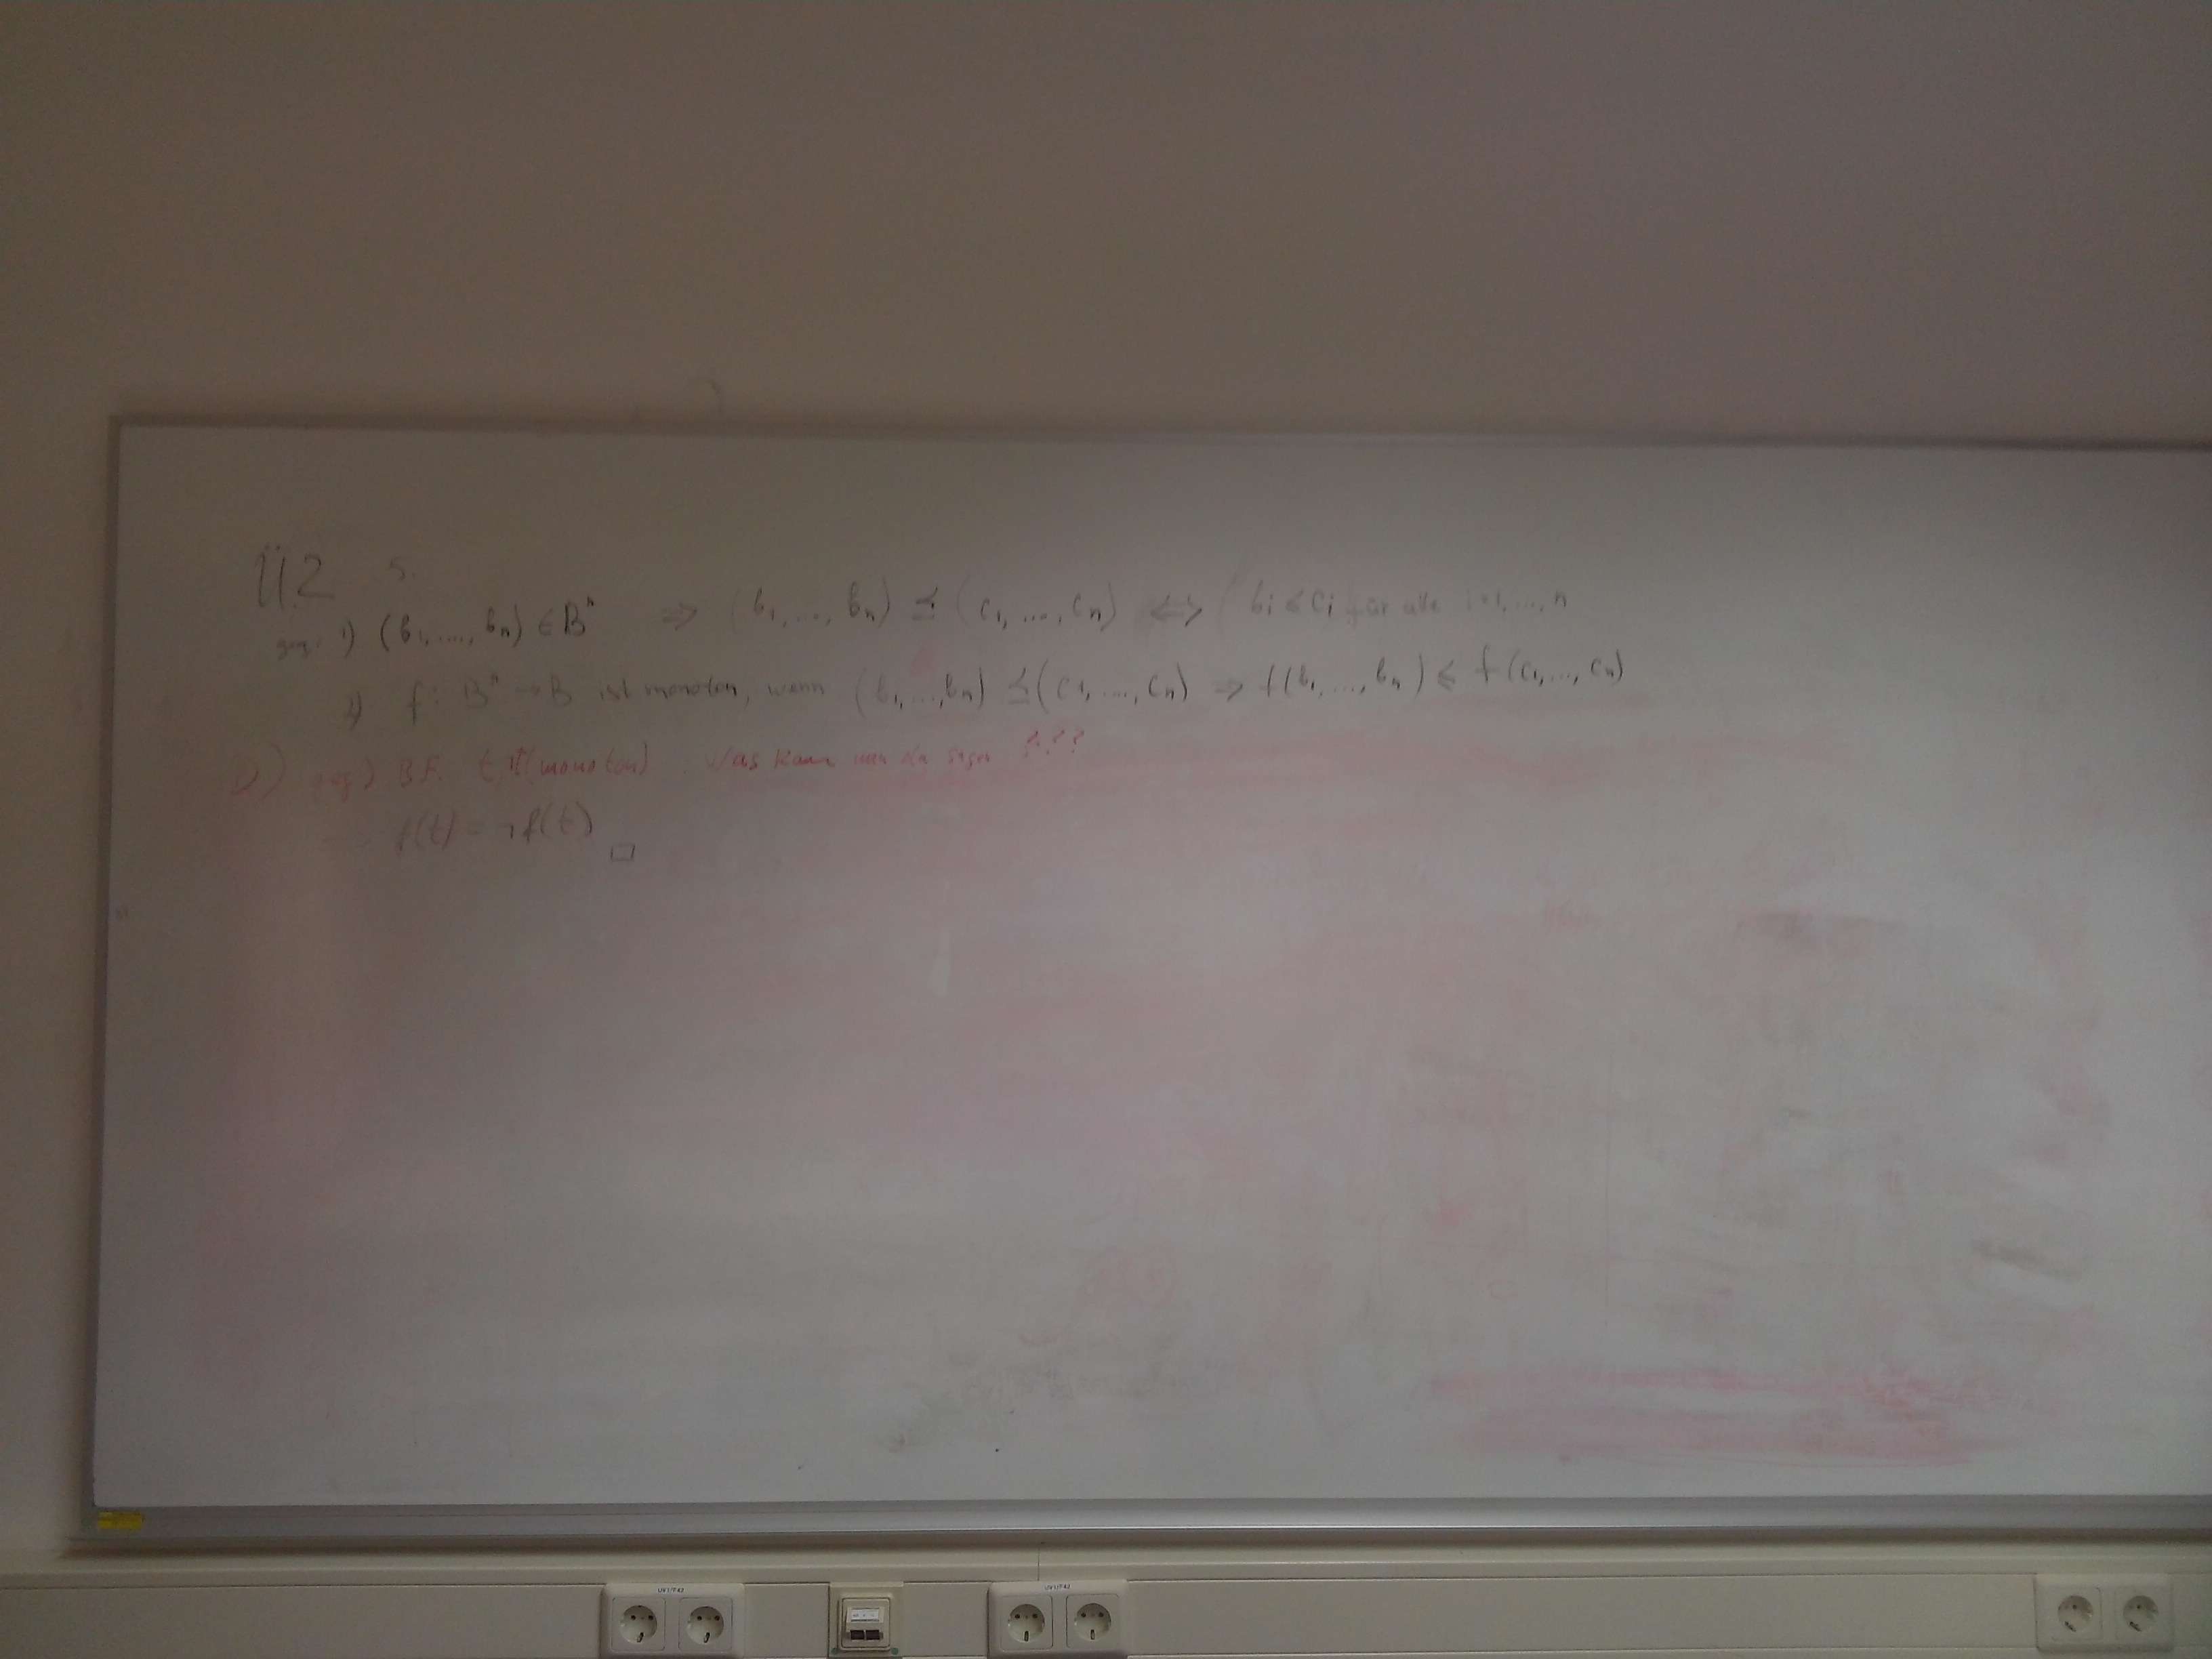 Ü2 5.
geg: 1) (b₁, ..., bₙ) ∈ Bⁿ ⇒ (b₁, ..., bₙ) ≤ (c₁, ..., cₙ) ⟺ bᵢ ≤ cᵢ für alle i=1, ..., n
2) f: Bⁿ → B ist monoton, wenn (b₁, ..., bₙ) ≤ (c₁, ..., cₙ) ⇒ f(b₁, ..., bₙ) ≤ f(c₁, ..., cₙ)
D) geg) t (monoton). Was kann man ???
f(t) = ¬f(t) □